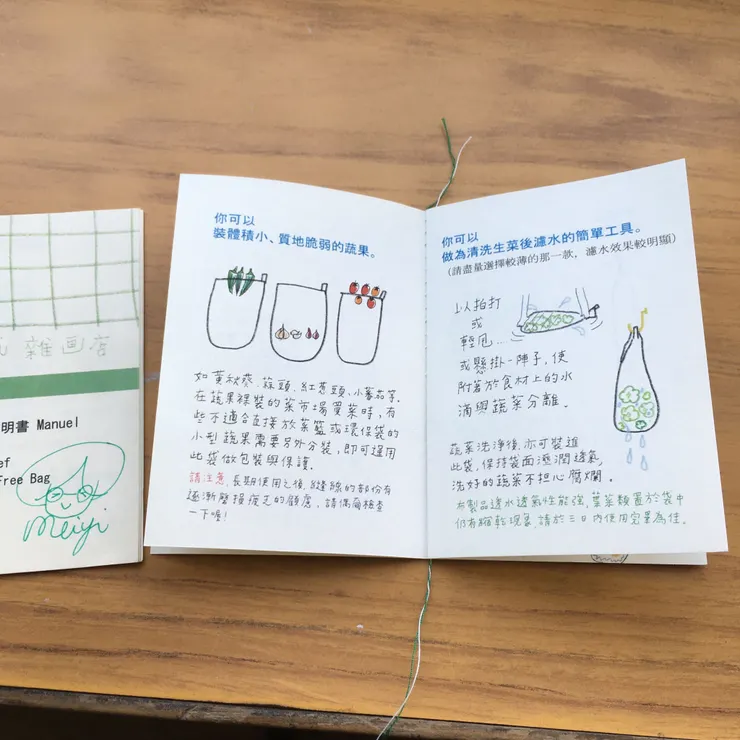 雜画店
明書 Manuel
ef
Free Bag
Meiyi
你可以
裝體積小、質地脆弱的蔬果。
如黃秋葵、蒜頭、紅蔥頭、小蕃茄等。
在蔬果裸裝的菜市場買菜時，有
些不適合直接放菜籃或環保袋的
小型蔬果需要另外分裝，即可運用
此袋做包裝與保護。
請注意，長期使用之後，縫線的部份有
逐漸磨損脫芝的顧慮，請偶爾檢查
一下喔！
你可以
做為清洗生菜後濾水的簡單工具。
(請盡量選擇較薄的那一款，濾水效果較明顯)
以拍打
或
輕甩...
或懸掛一陣子，使
附著於食材上的水
滴與蔬菜分離。
蔬菜洗淨後，亦可裝進
此袋，保持袋面溼潤透氣，
洗好的蔬菜不担心腐爛。
布製品透水透氣性能強，葉菜類置於袋中
仍有縮乾現象，請於三日內使用完畢為佳。